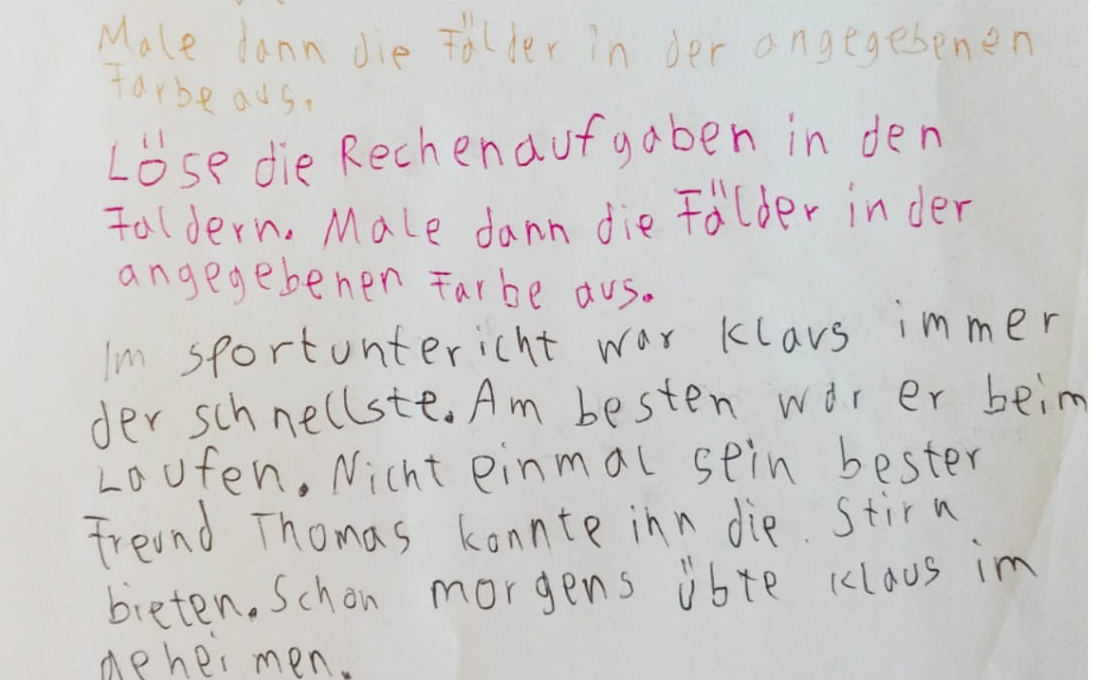 Male dann die Fälder in der angegebenen
Farbe aus.
Löse die Rechenaufgaben in den
Faldern. Male dann die Fälder in der
angegebenen Farbe aus.
Im sportuntericht war Klaus immer
der schnellste. Am besten war er beim
Laufen. Nicht einmal sein bester
Freund Thomas konnte ihn die Stirn
bieten. Schon morgens übte Klaus im
geheimen.